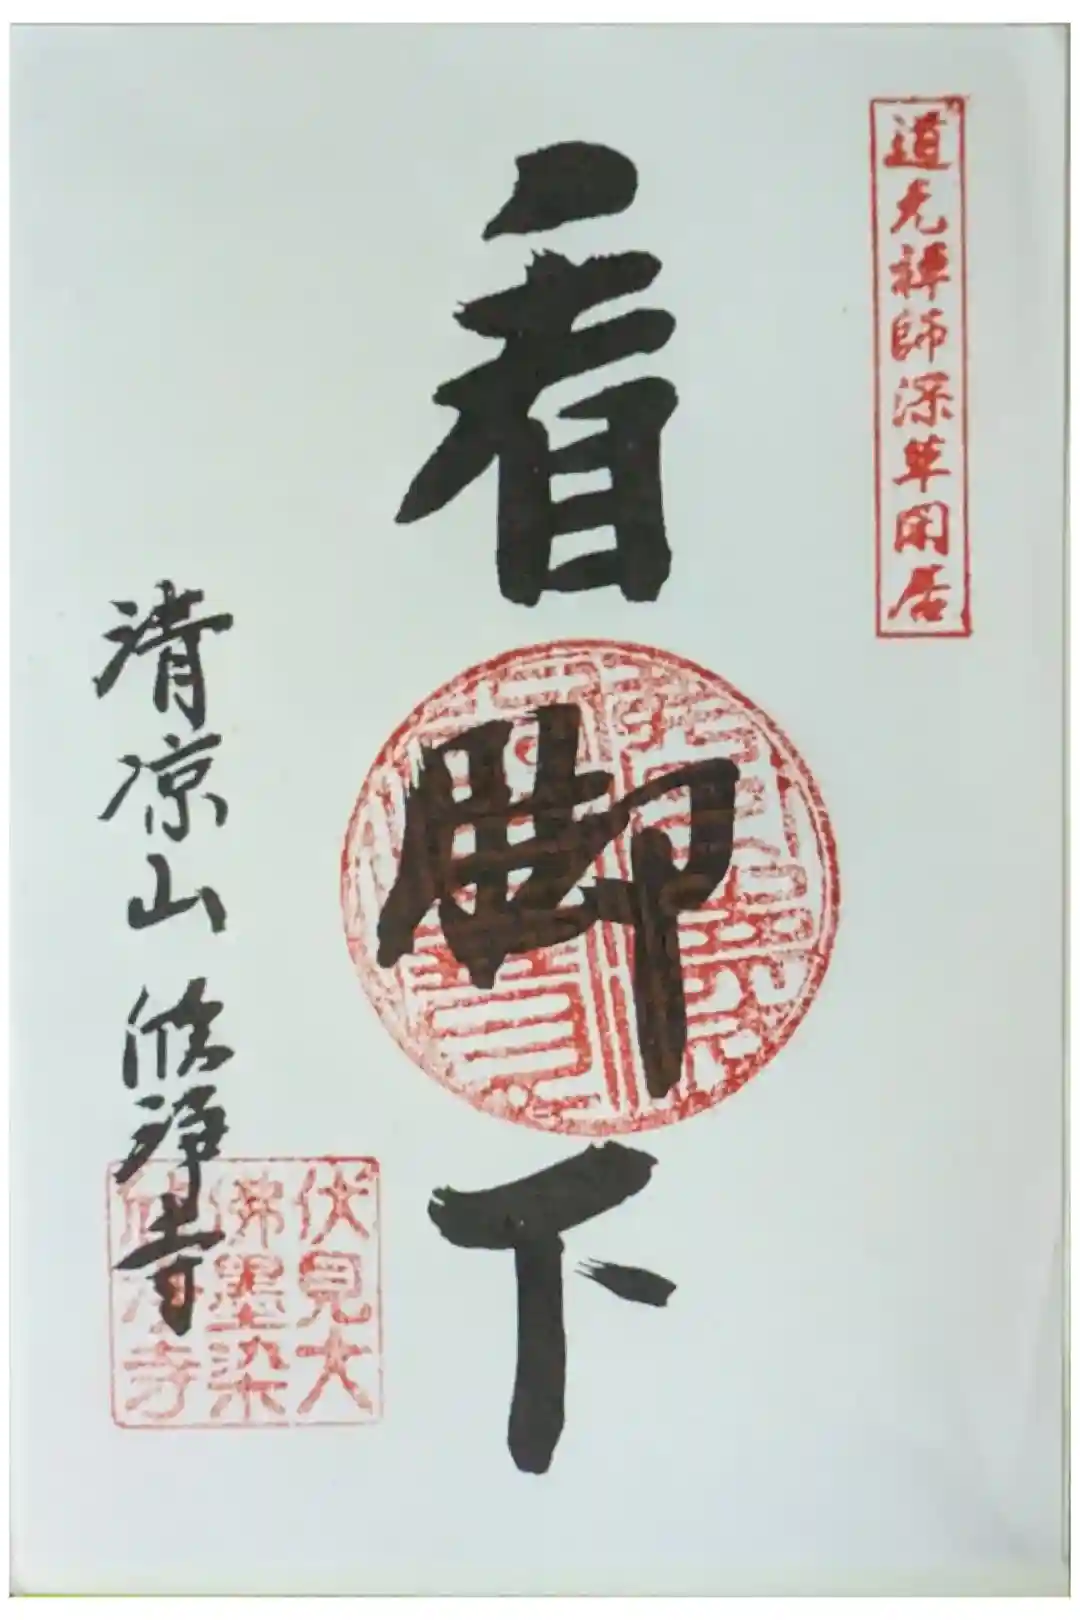 道元禅師深草閑居
看脚下
清涼山 欣浄寺
伏見大
佛墨染
欣浄寺